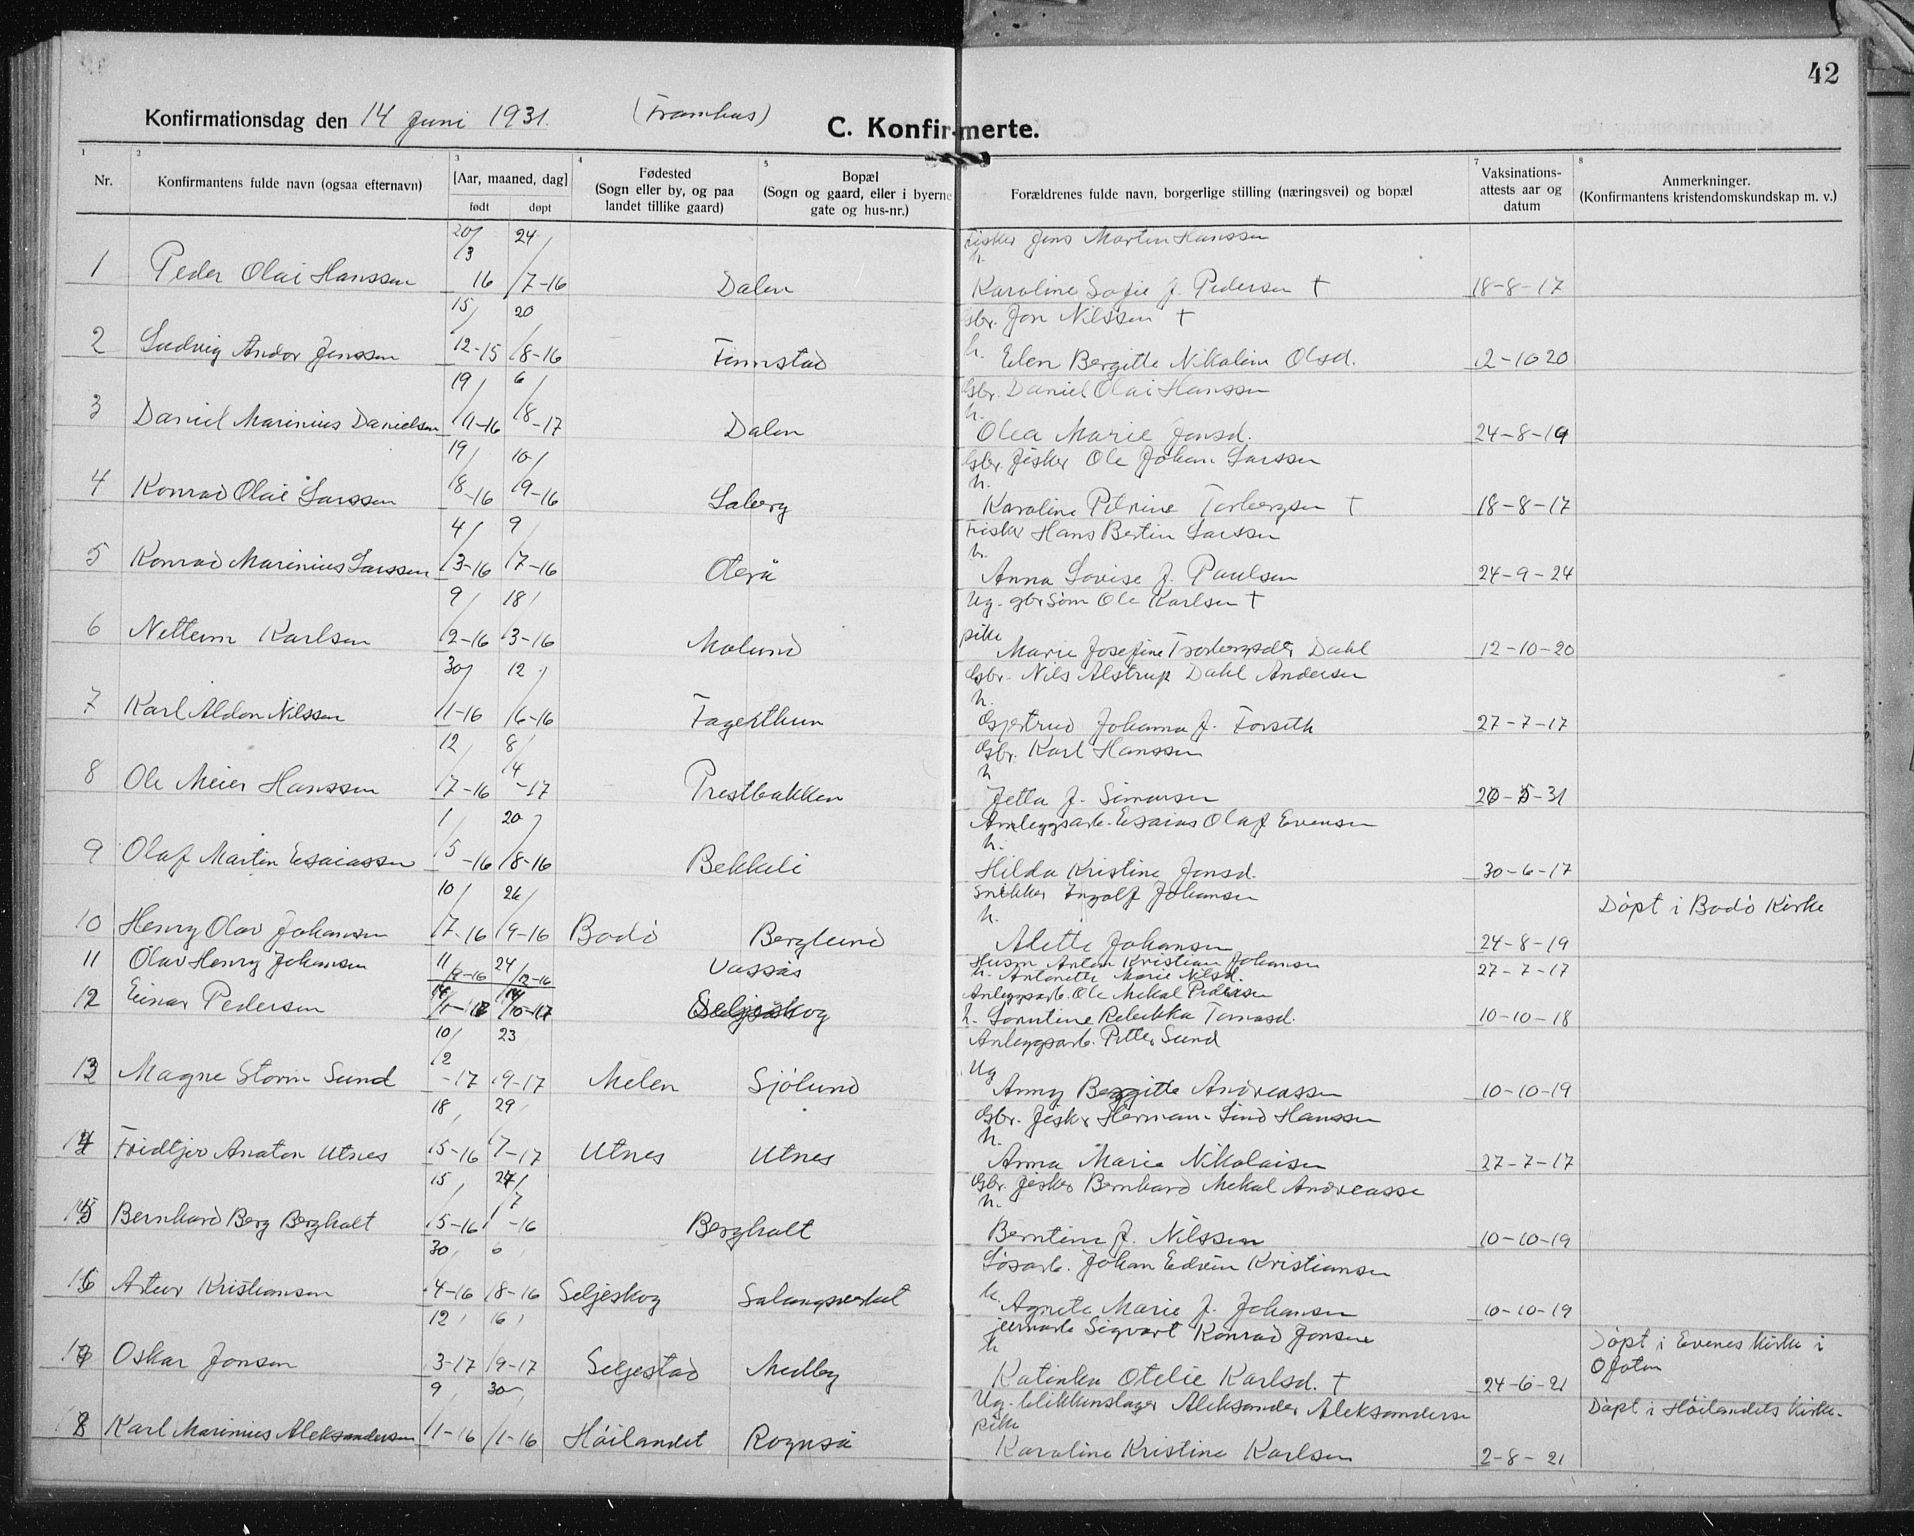 42
Konfirmationsdag den 14 Juni 1931. (Framhus)
C. Konfirmerte.
1 2 3 4 5 7 8
Nr. Konfirmantens fulde navn (ogsaa efternavn) [Aar, maaned, dag] født døpt Fødested (Sogn eller by, og paa landet tillike gaard) Bopæl (Sogn og gaard, eller i byerne gate og hus-nr.) Forældrenes fulde navn, borgerlige stilling (næringsvei) og bopæl Vaksinations-attests aar og datum Anmerkninger. (Konfirmantens kristendomskundskap m. v.)
Fisker Jens Martin Hanssen
1 Peder Olai Hanssen 20/3 16 24/7-16 Dalen h. Karoline Sofie f. Pedersen † 18-8-17
Gbr. Jon Nilssen †
2 Ludvig Andor Jenssen 15/12-15 20/8-16 Finnstad h. Elen Bergitte Nikoline Olsd. 12-10 20
Gbr. Daniel Olai Hanssen
3 Daniel Marinius Danielsen 19/11-16 6/8-17 Dalen h. Olea Marie Jonsd. 24-8-19
Gbr. fisker Ole Johan Larssen
4 Konrad Olai Larssen 19/8-16 10/9-16 Laberg h. Karoline Petrine Torbergsen † 18-8-17
Fisker Hans Bertin Larssen
5 Konrad Marinius Larssen 4/3-16 9/7-16 Oterå h. Anna Lovise f. Paulsen 24-9-24
Ug. gbr søn Ole Karlsen †
6 Karlsen 9/2-16 18/3-16 Molund pike Marie Josefine Torbergsdtr Dahl 12-10-20
Gbr. Nils Alstrup Dahl Andersen
7 Karl Aldon Nilssen 30/1-16 12/6-16 h. Gjertrud Johanna f. Forseth 27-7-17
Gbr. Karl Hanssen
8 Ole Meier Hanssen 12/7-16 8/4-17 Prestbakken h Jetta f. Simonsen 20-5-31
Anleggsarb. Esaias Olaf Evensen
9 Olaf Martin Esaiassen 1/5-16 20/8-16 Bekkeli h. Hilda Kristine Jonsd. 30-6-17
Snekker Ingolf Johansen
10 Henry Olav Johansen 10/7-16 26/9-16 Bodö Berglund h. Alette Johansen 24-8-19 Döpt i Bodö Kirke
Husm Anton Kristian Johansen
11 Olav Henry Johansen 24/12-16 Vassås h. Antonette Marie Nilsd. 27-7-17
Anleggsarb. Ole Mekal Pedersen
12 Einar Pedersen Seljeskog h. Lorntine Rebekka Tomasd. 10-10-18
Anleggsarb. Petter Sund
13 Magne Storm Sund 10/2-17 23/9-17 Melen Sjölund Ug Anny Bergitte Andreassen 10-10-19
Gbr. fisker Herman Lind Hanssen
14 Fridtjov Anaton Utnes 18/5-16 29/7-17 Utnes Utnes h. Anna Marie Nikolaisen 27-7-17
Gbr. fisker Bernhard Mekal Andreasse
15 Bernhard Berg Bergholt 15/5-16 Bergholt h. Berntine f. Nilssen 10-10-19
Lösarb. Johan Edvin Kristiansen
16 Artur Kristiansen 30/4-16 6/8-16 Seljeskog Salangsverket h. Agnete Marie f. Johansen 10-10-19
Sigvart Konrad Jonsen
17 Oskar Jonsen 12/3-17 16/9-17 Seljestad Medby h Katinka Otelie Karlsd. † 24-6-21 Döpt i Evenes Kirke i Ofoten
Ug. blikkenslager Aleksander Aleksanderse
18 Karl Marinius Aleksandersen 9/1-16 30/1-16 Höilandet Rognså pike Karoline Kristine Karlsen 2-8-21 Döpt i Höilandets Kirke.